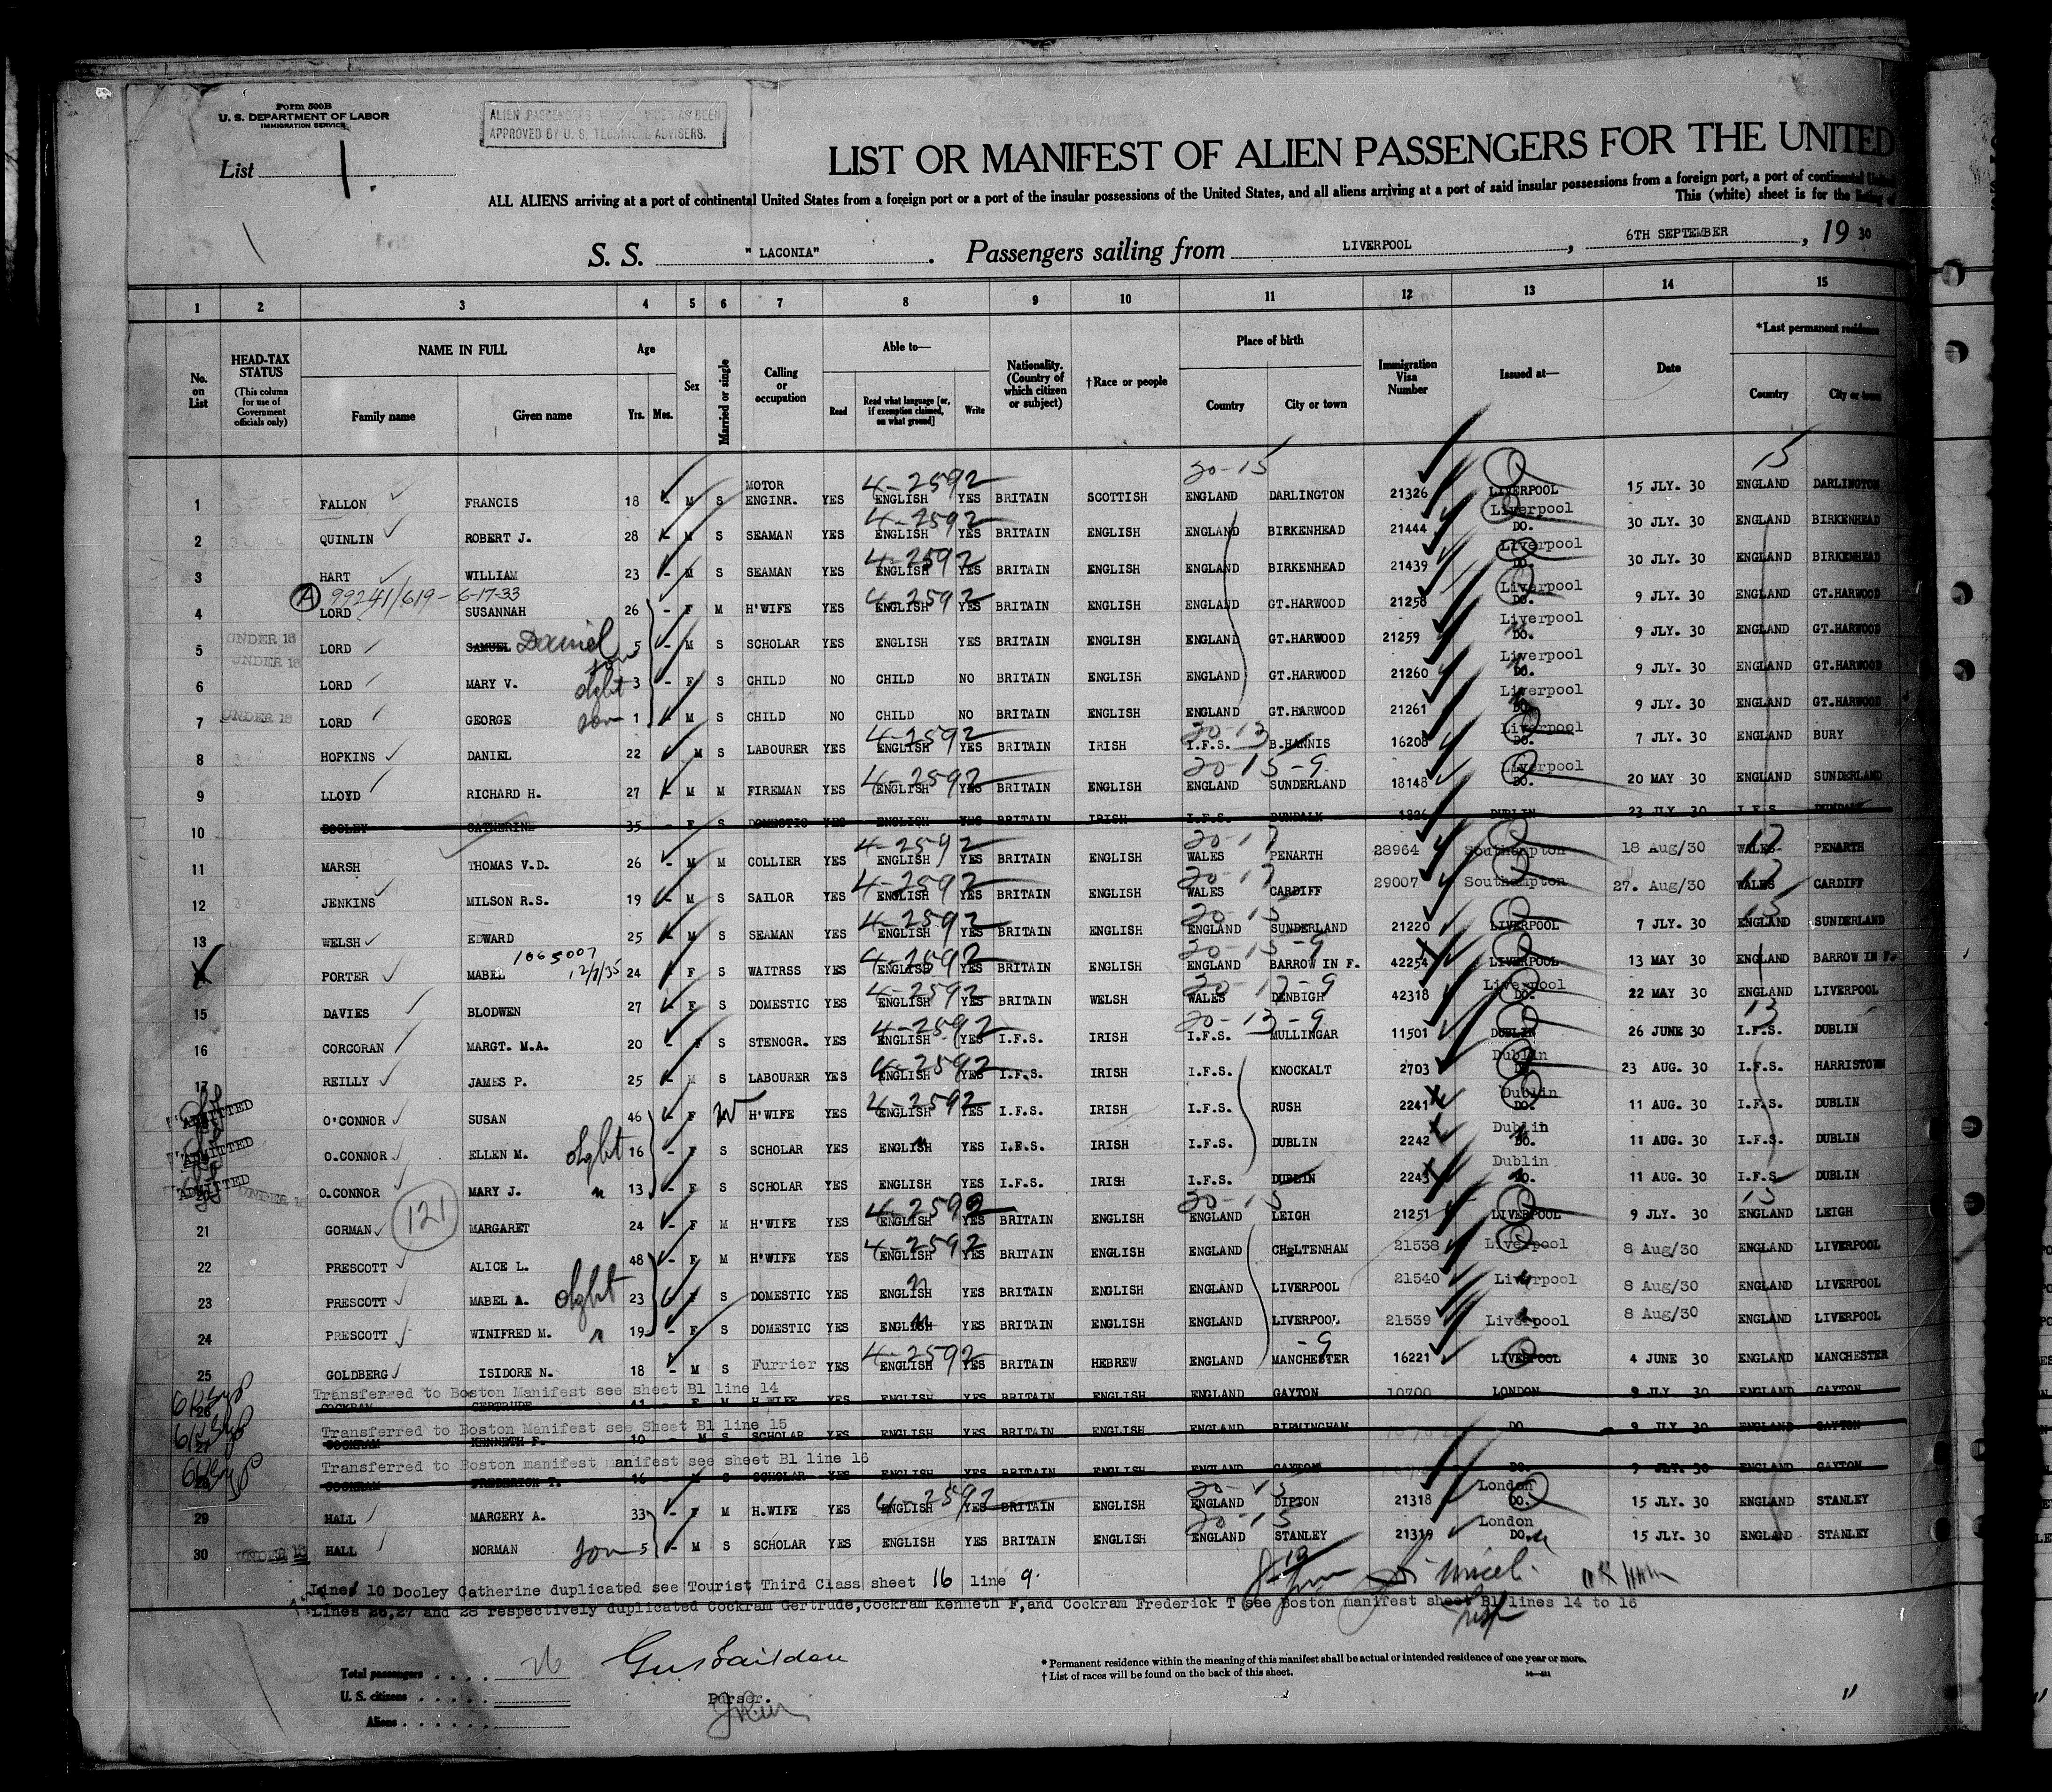 Form 500B
U. S. DEPARTMENT OF LABOR
IMMIGRATION SERVICE
ALIEN PASSENGERS
APPROVED BY U. S. TECHNICAL ADVISERS.
List 1.
LIST OR MANIFEST OF ALIEN PASSENGERS FOR THE UNITED
ALL ALIENS arriving at a port of continental United States from a foreign port or a port of the insular possessions of the United States, and all aliens arriving at a port of said insular possessions from a foreign port, a port of continental
This (white) sheet is for the
S. S. "LACONIA". Passengers sailing from LIVERPOOL, 6TH SEPTEMBER, 1930
1 2 3 4 5 6 7 8 9 10 11 12 13 14 15
No. on List HEAD-TAX STATUS (This column for use of Government officials only) NAME IN FULL Family name Given name Age Yrs. Mos. Sex Married or single Calling or occupation Able to— Read Read what language [or, if exemption claimed, on what ground] Write Nationality. (Country of which citizen or subject) †Race or people Place of birth Country City or town Immigration Visa Number Issued at— Date *Last permanent residence Country City or town
20-15 15
1 FALLON FRANCIS 18 - M S MOTOR ENGINR. YES 4-2592 ENGLISH YES BRITAIN SCOTTISH ENGLAND DARLINGTON 21326 LIVERPOOL 15 JLY. 30 ENGLAND DARLINGTON
2 QUINLIN ROBERT J. 28 - M S SEAMAN YES 4-2592 ENGLISH YES BRITAIN ENGLISH ENGLAND BIRKENHEAD 21444 Liverpool DO. 30 JLY. 30 ENGLAND BIRKENHEAD
3 HART WILLIAM 23 - M S SEAMAN YES 4-2592 ENGLISH YES BRITAIN ENGLISH ENGLAND BIRKENHEAD 21439 Liverpool DO. 30 JLY. 30 ENGLAND BIRKENHEAD
A 99241/619 - 6-17-33
4 LORD SUSANNAH 26 - F M H'WIFE YES 4-2592 ENGLISH YES BRITAIN ENGLISH ENGLAND GT.HARWOOD 21258 Liverpool DO. 9 JLY. 30 ENGLAND GT.HARWOOD
5 UNDER 16 LORD SAMUEL Daniel son 5 - M S SCHOLAR YES ENGLISH YES BRITAIN ENGLISH ENGLAND GT.HARWOOD 21259 Liverpool DO. 9 JLY. 30 ENGLAND GT.HARWOOD
6 UNDER 16 LORD MARY V. dght 3 - F S CHILD NO CHILD NO BRITAIN ENGLISH ENGLAND GT.HARWOOD 21260 Liverpool DO. 9 JLY. 30 ENGLAND GT.HARWOOD
7 UNDER 16 LORD GEORGE son 1 - M S CHILD NO CHILD NO BRITAIN ENGLISH ENGLAND GT.HARWOOD 21261 Liverpool DO. 9 JLY. 30 ENGLAND GT.HARWOOD
8 HOPKINS DANIEL 22 M S LABOURER YES 4-2592 ENGLISH YES BRITAIN IRISH 20-13 I.F.S. B.HANNIS 16208 Liverpool DO. 7 JLY. 30 ENGLAND BURY
9 LLOYD RICHARD H. 27 - M M FIREMAN YES 4-2592 ENGLISH YES BRITAIN ENGLISH 20-15-9 ENGLAND SUNDERLAND 18148 Liverpool DO. 20 MAY 30 ENGLAND SUNDERLAND
10 DOOLEY CATHERINE 35 - F S DOMESTIC YES ENGLISH YES BRITAIN IRISH I.F.S. DUNDALK 1826 DUBLIN 23 JLY 30 I.F.S. DUNDALK
11 MARSH THOMAS V.D. 26 - M M COLLIER YES 4-2592 ENGLISH YES BRITAIN ENGLISH 20-17 WALES PENARTH 28964 Southampton 18 Aug/30 17 WALES PENARTH
12 JENKINS MILSON R.S. 19 - M S SAILOR YES 4-2592 ENGLISH YES BRITAIN ENGLISH 20-17 WALES CARDIFF 29007 Southampton 27. Aug/30 17 WALES CARDIFF
13 WELSH EDWARD 25 - M S SEAMAN YES 4-2592 ENGLISH YES BRITAIN ENGLISH 20-15 ENGLAND SUNDERLAND 21220 LIVERPOOL 7 JLY. 30 15 ENGLAND SUNDERLAND
PORTER MABEL 1065007 12/7/35 24 F S WAITRSS YES 4-2592 ENGLISH YES BRITAIN ENGLISH 20-15-9 ENGLAND BARROW IN F. 42254 LIVERPOOL 13 MAY 30 ENGLAND BARROW IN F.
15 DAVIES BLODWEN 27 - F S DOMESTIC YES 4-2592 ENGLISH YES BRITAIN WELSH 20-17-9 WALES DENBIGH 42318 Liverpool DO. 22 MAY 30 ENGLAND LIVERPOOL
16 CORCORAN MARGT. M.A. 20 - F S STENOGR. YES 4-2592 ENGLISH YES I.F.S. IRISH 20-13-9 I.F.S. MULLINGAR 11501 DUBLIN 26 JUNE 30 13 I.F.S. DUBLIN
17 REILLY JAMES P. 25 - M S LABOURER YES 4-2592 ENGLISH YES I.F.S. IRISH I.F.S. KNOCKALT 2703 Dublin 23 AUG. 30 I.F.S. HARRISTOWN
ADMITTED O'CONNOR SUSAN 46 - F W H'WIFE YES 4-2592 ENGLISH YES I.F.S. IRISH I.F.S. RUSH 2241 Dublin DO. 11 AUG. 30 I.F.S. DUBLIN
ADMITTED O.CONNOR ELLEN M. dght 16 - F S SCHOLAR YES ENGLISH YES I.F.S. IRISH I.F.S. DUBLIN 2242 Dublin DO. 11 AUG. 30 I.F.S. DUBLIN
20 ADMITTED UNDER 16 O.CONNOR MARY J. " 13 - F S SCHOLAR YES ENGLISH YES I.F.S. IRISH I.F.S. DUBLIN 2243 Dublin DO. 11 AUG. 30 I.F.S. DUBLIN
21 GORMAN 121 MARGARET 24 - F M H'WIFE YES 4-2592 ENGLISH YES BRITAIN ENGLISH 20-15 ENGLAND LEIGH 21251 LIVERPOOL 9 JLY. 30 15 ENGLAND LEIGH
22 PRESCOTT ALICE L. 48 - F M H'WIFE YES 4-2592 ENGLISH YES BRITAIN ENGLISH ENGLAND CHELTENHAM 21538 Liverpool 8 Aug/30 ENGLAND LIVERPOOL
23 PRESCOTT MABEL A. dght 23 - F S DOMESTIC YES ENGLISH YES BRITAIN ENGLISH ENGLAND LIVERPOOL 21540 Liverpool 8 Aug/30 ENGLAND LIVERPOOL
24 PRESCOTT WINIFRED M. " 19 - F S DOMESTIC YES ENGLISH YES BRITAIN ENGLISH ENGLAND LIVERPOOL 21539 Liverpool 8 Aug/30 ENGLAND LIVERPOOL
25 GOLDBERG ISIDORE N. 18 - M S Furrier YES 4-2592 ENGLISH YES BRITAIN HEBREW ENGLAND -9 MANCHESTER 16221 LIVERPOOL 4 JUNE 30 ENGLAND MANCHESTER
Transferred to Boston Manifest see sheet B1 line 14
26 COCKRAM GERTRUDE 41 - F M H.WIFE YES ENGLISH YES BRITAIN ENGLISH ENGLAND GAYTON 10700 LONDON 9 JLY 30 ENGLAND GAYTON
Transferred to Boston Manifest see Sheet B1 line 15
27 COCKRAM KENNETH F. 10 - M S SCHOLAR YES ENGLISH YES BRITAIN ENGLISH ENGLAND BIRMINGHAM DO 9 JLY 30 ENGLAND GAYTON
Transferred to Boston manifest manifest see sheet B1 line 16
28 COCKRAM FREDERICK T. 16 - M S SCHOLAR YES ENGLISH YES BRITAIN ENGLISH ENGLAND GAYTON DO. 9 JLY. 30 ENGLAND GAYTON
29 HALL MARGERY A. 33 - F M H.WIFE YES 4-2592 ENGLISH YES BRITAIN ENGLISH 20-15 ENGLAND DIPTON 21318 London DO. 15 JLY. 30 ENGLAND STANLEY
30 UNDER 16 HALL NORMAN son 5 - M S SCHOLAR YES ENGLISH YES BRITAIN ENGLISH 20-15 ENGLAND STANLEY 21319 London DO. 15 JLY. 30 ENGLAND STANLEY
Line 10 Dooley Catherine duplicated see Tourist Third Class sheet 16 line 9.
Lines 26,27 and 28 respectively duplicated Cockram Gertrude,Cockram Kenneth F,and Cockram Frederick T see Boston manifest sheet B1 lines 14 to 16
Total passengers . . . . 26
U. S. citizens . . . . .
Aliens . . . . . .
Purser.
* Permanent residence within the meaning of this manifest shall be actual or intended residence of one year or more.
† List of races will be found on the back of this sheet.